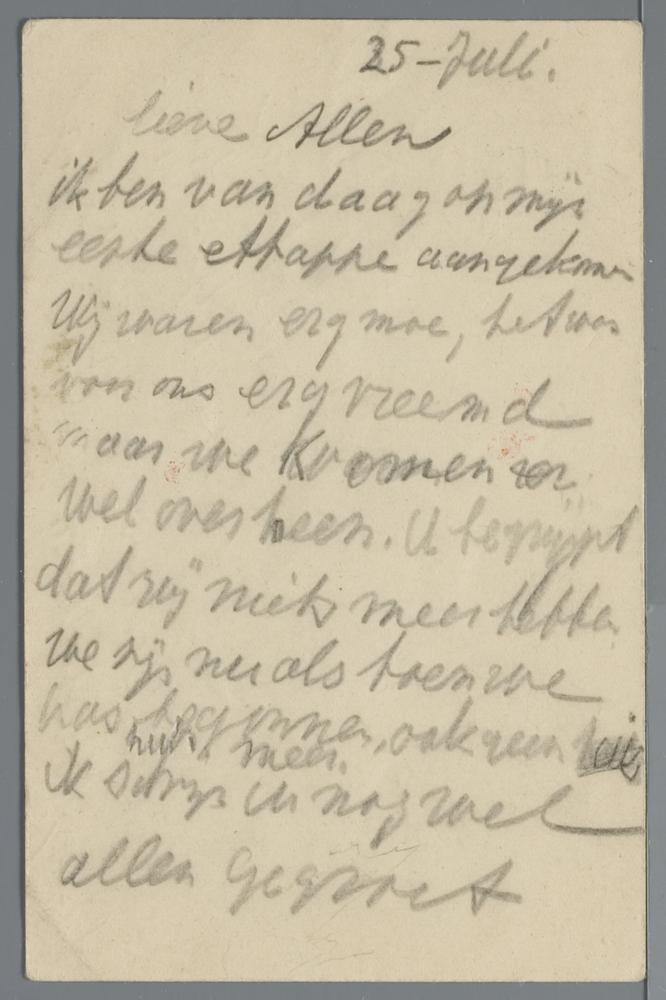 25-Juli.
lieve Allen
ik ben van daag op mijn
eerste ettappe aangekomen
Wij waren erg moe, het was
voor ons erg vreemd
maar we komen er
wel overheen. U begrijpt
dat wij niets meer hebben
we zijn nu als toen we
was begonnen, ook geen
huis meer.
ik schrijf U nog wel
allen gegroet